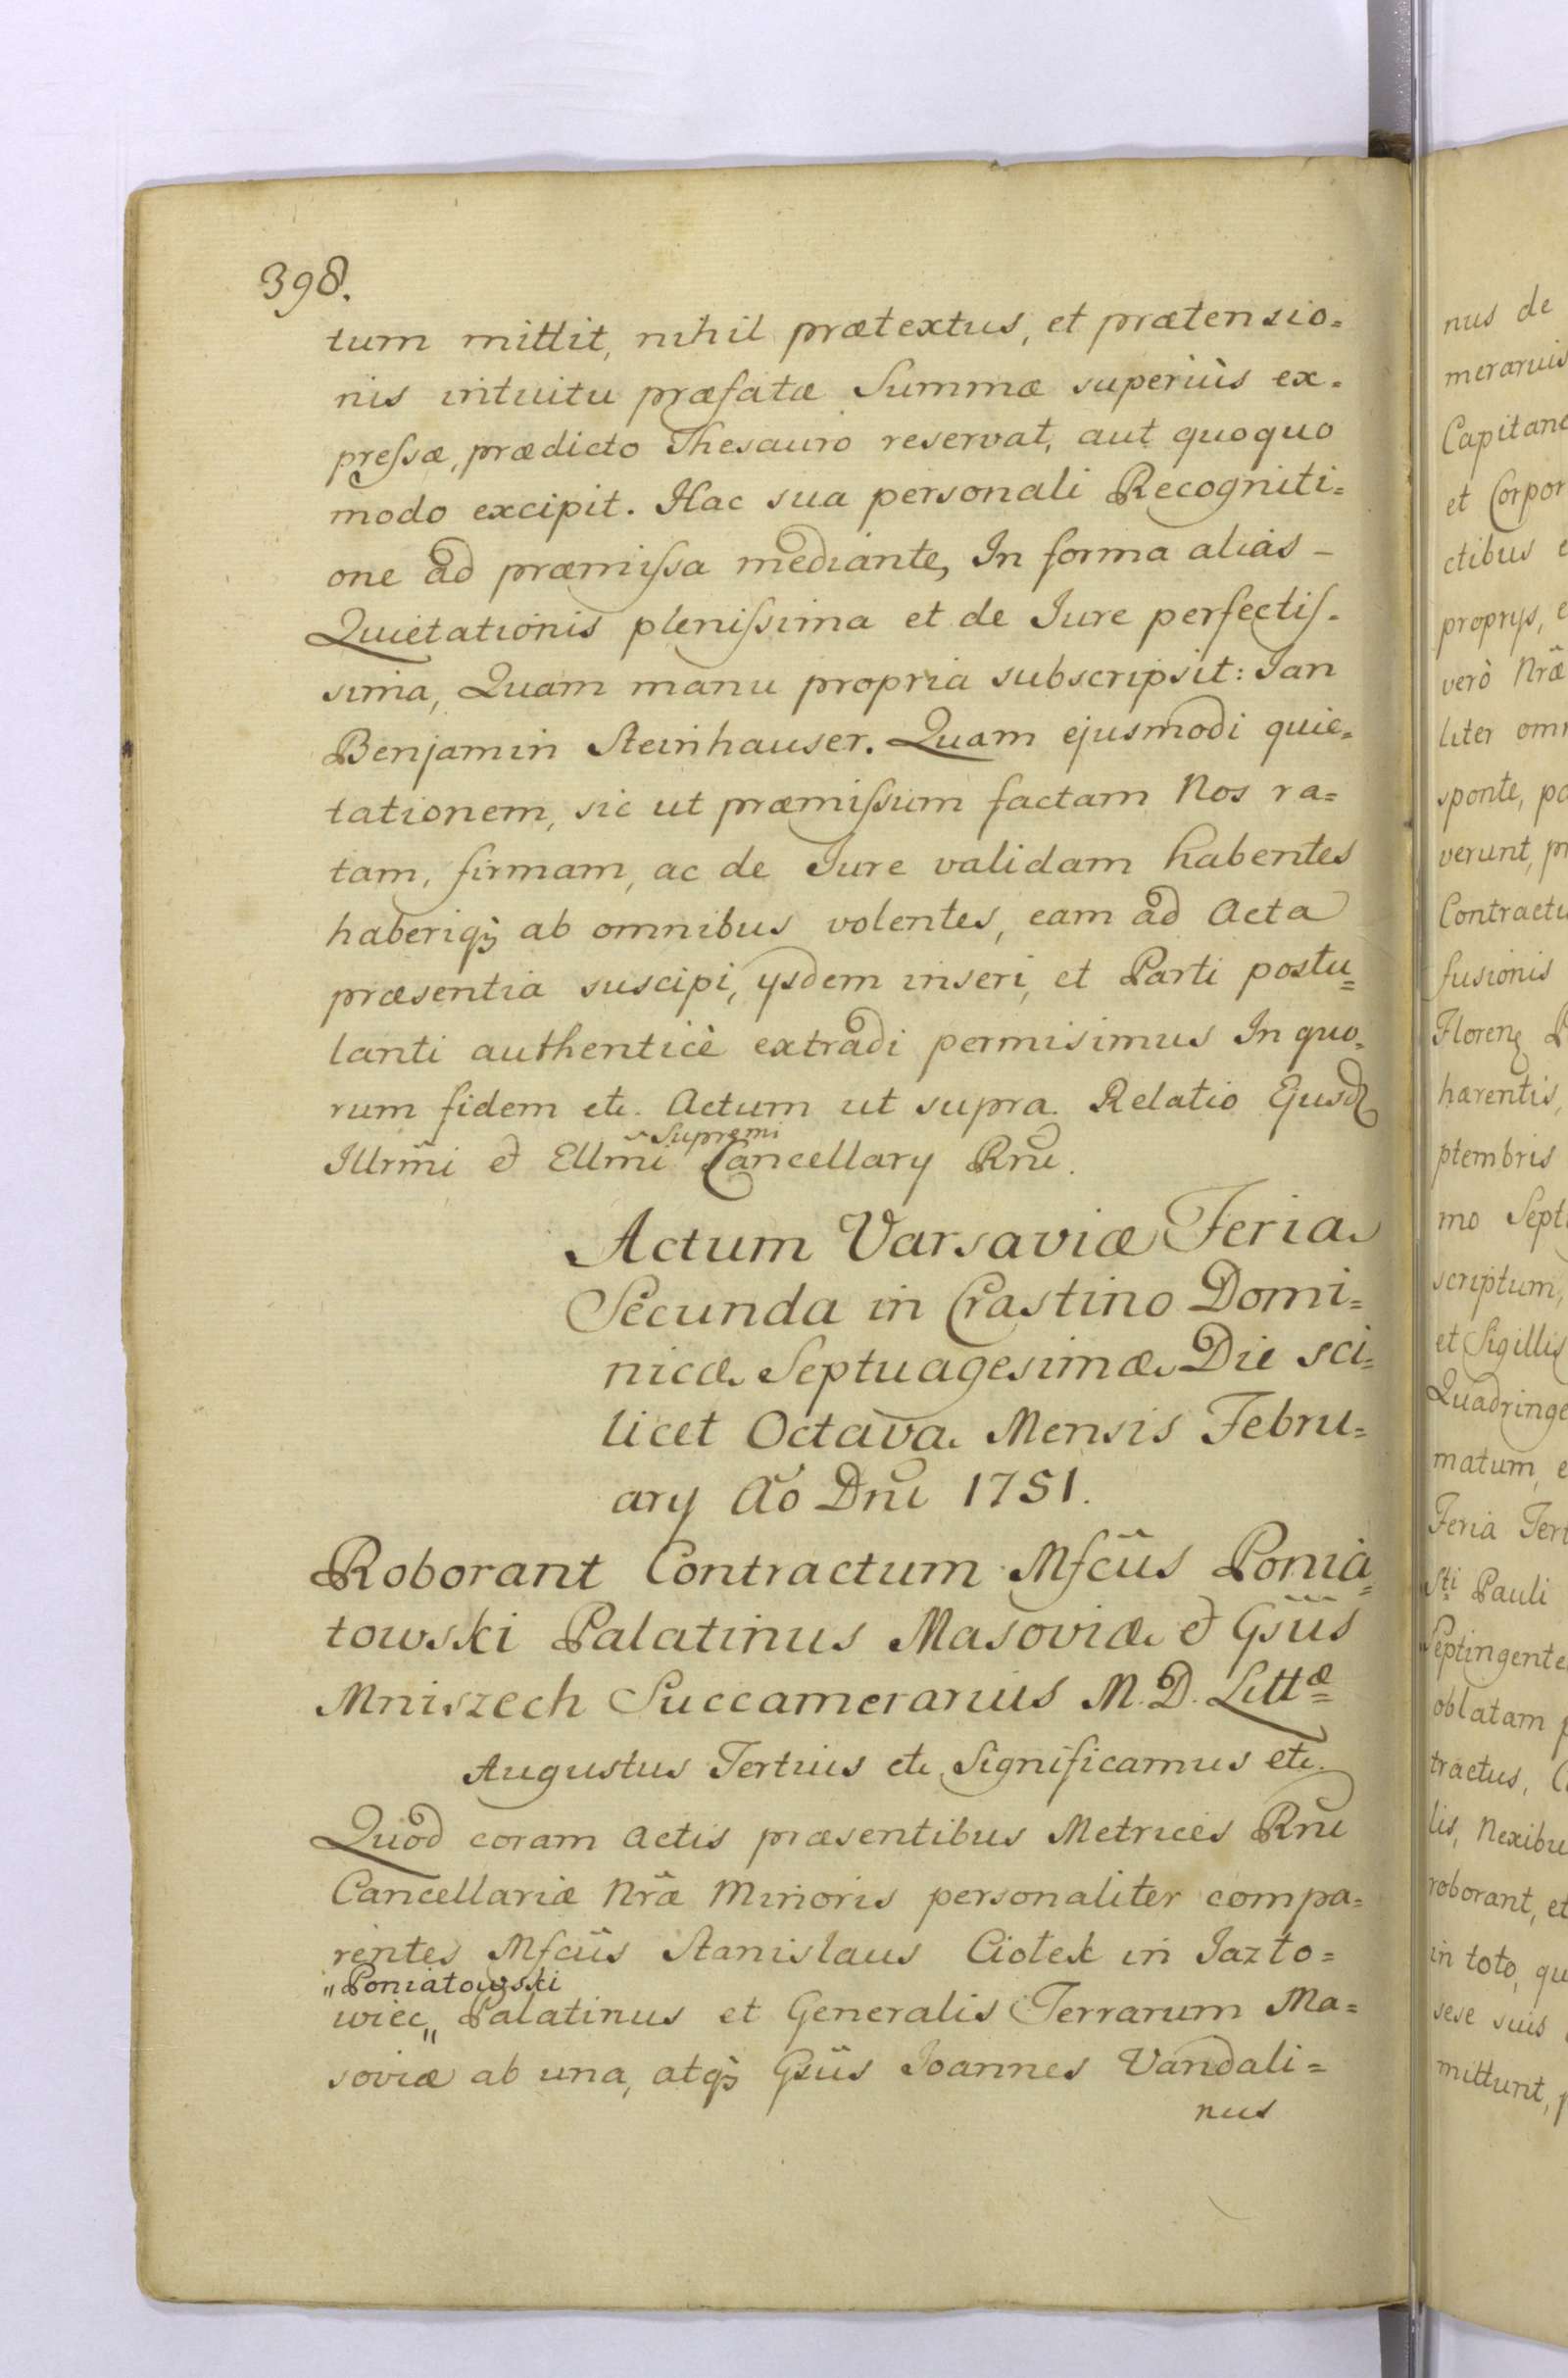 398.
tum mittit, nihil prætextus, et prætensio=
nis intuitu præfatæ Summæ superiùs ex=
preſsæ, prædicto Thesauro reservat, aut quoquo
modo excipit. Hac sua personali Recogniti=
one ad præmiſsa mediante, In forma alias -
Quietationis pleniſsima et de Iure perfectiſ=
sima, Quam manu propria subscripsit: Ian
Benjamin Steinhauser. Quam ejusmodi quie=
tationem, sic ut præmiſsum factam Nos ra=
tam, firmam, ac de Iure validam habentes
haberiqꝫ ab omnibus volentes, eam ad Acta
præsentia suscipi, ysdem inseri, et Parti postu=
lanti authenticè extradi permisimus In quo=
rum fidem etc. Actum ut supra. Relatio Ejusd
Supremi
Illrm̃i et Ellm̃i Cancellary Rnĩ.
Actum Varsaviæ Feria
Secunda in Crastino Domi=
nicæ Septuagesimæ Die sci=
licet Octava Mensis Febru=
ary Aõ Dnĩ 1751.
Roborant Contractum Mfcũs Ponia=
towski Palatinus Masoviæ et Gsũs
Mniszech Succamerarius M. D. Littæ
Augustus Tertius etc. Significamus etc.
Quod coram Actis præsentibus Metrices Rnĩ
Cancellariæ Nræ̃ Minoris personaliter compa=
rentes Mfcũs Stanislaus Ciołek in Jazło=
„Poniatowski
wiec„ Palatinus et Generalis Terrarum Ma=
soviæ ab una, atqꝫ Gsũs Joannes Vandali=
nus
nus de
meraruis
Capitane
et Corpor
ctibus e
proprys, e
verò Nræ̃
liter omn
sponte, pa
verunt, pr
Contractu
fusionis
Floren
hærentis,
ptembris
mo Septi
scriptum,
et Sigillis
Quadringe
matum, e
Feria Tert
Sti Pauli
Septingente
oblatam p
tractus, C
lis, Nexibu
roborant, et
in toto, qu
sese suis
mittunt, p